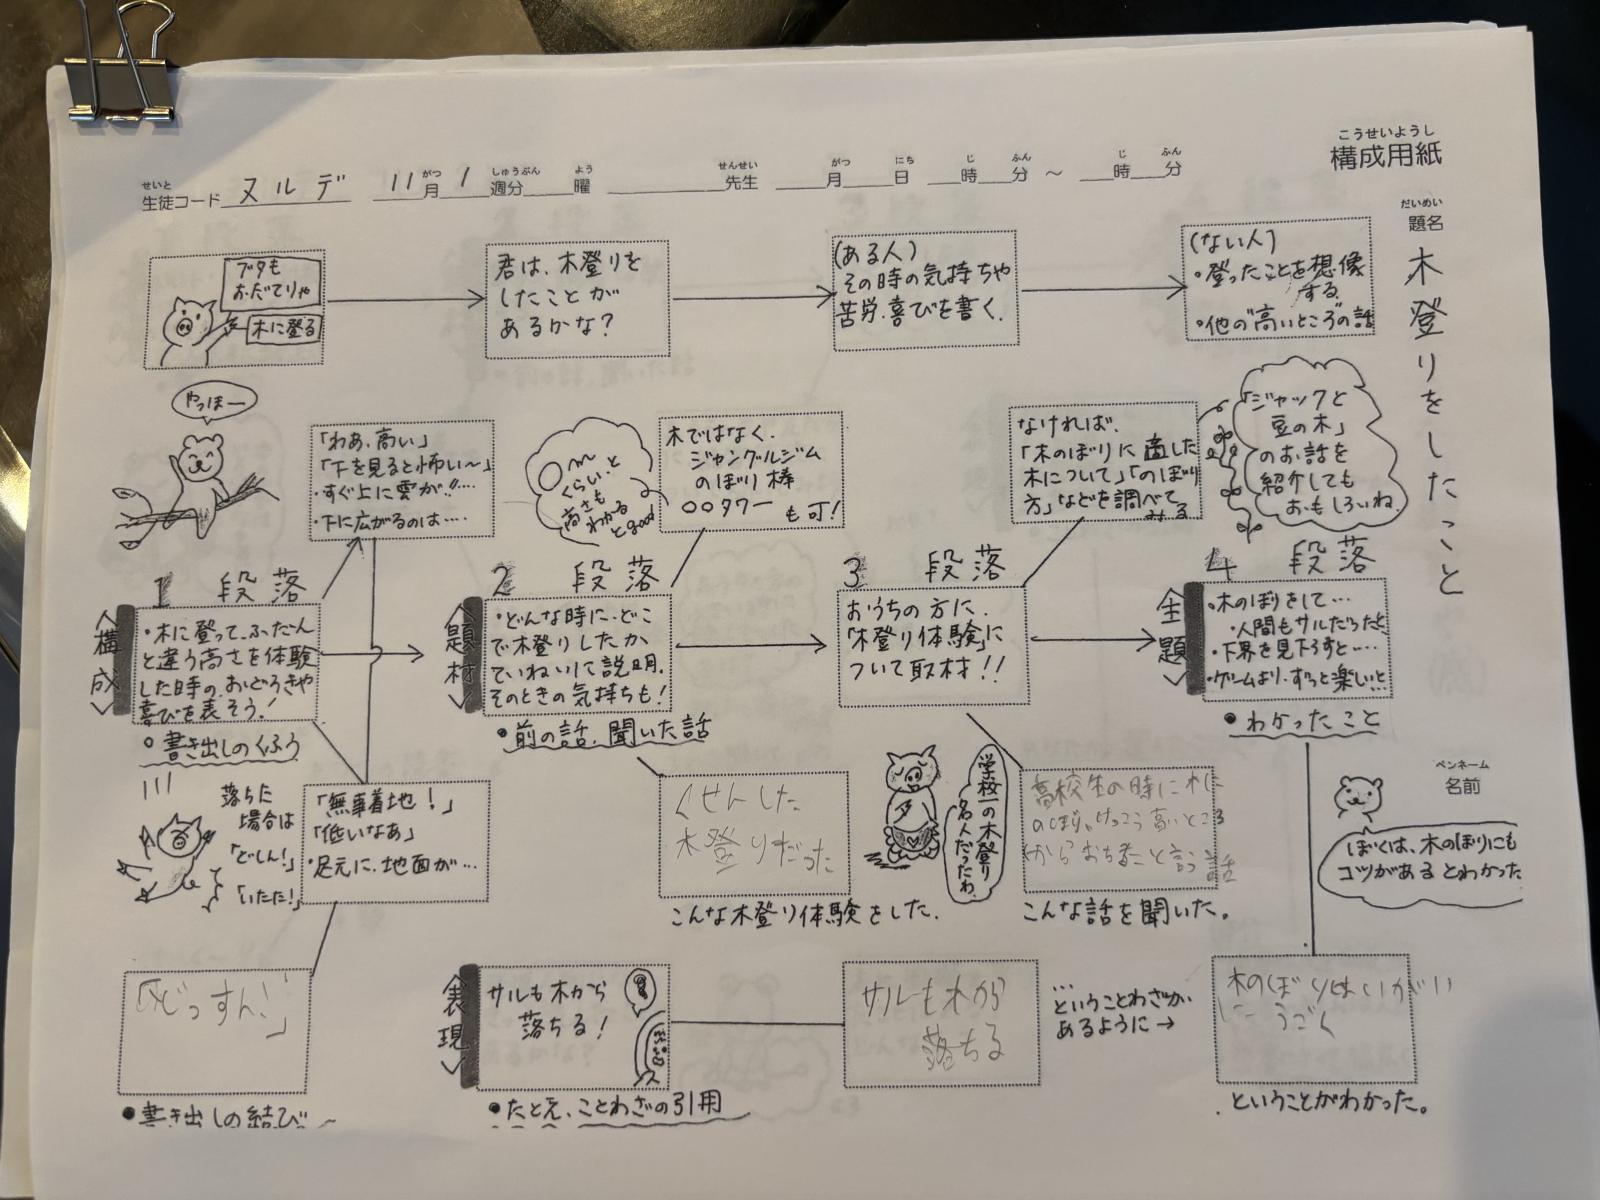 こうせいようし
構成用紙
せいと
生徒コード ヌルデ 11月 1週分 曜 先生 月 日 時 分 ～ 時 分
がつ しゅうぶん よう せんせい がつ にち じ ふん じ ふん
だいめい
題名
木登りをしたこと
ブタも
おだてりゃ
木に登る
君は、木登りを
したことが
あるかな?
(ある人)
その時の気持ちや
苦労、喜びを書く、
(ない人)
・登ったことを想像
する
・他の"高いところ"の話
やっほー
「わあ、高い」
「下を見ると怖い〜」
・すぐ上に雲が!!….
・下に広がるのは….
〇m
くらい、と
高さも
わかる
とgood
木ではなく、
ジャングルジム
のぼり棒
〇〇タワー
も可!
なければ、
「木のぼりに適した
木について」「のぼり
方」などを調べて
みる
「ジャックと
豆の木」
のお話を
紹介しても
おもしろいね。
1 段落
〈構成〉
・木に登って、ふだん
と違う高さを体験
した時の、おどろきや
喜びを表そう!
○書き出しのくふう
2 段落
〈題材〉
・どんな時に、どこ
で木登りしたか、
ていねいに説明。
そのときの気持ちも!
●前の話、聞いた話
3 段落
おうちの方に、
「木登り体験」に
ついて取材!!
4 段落
〈主題〉
・木のぼりをして…
・人間もサルだったと
・下界を見下ろすと….
・ゲームより、ずっと楽しいと
●わかったこと
落ちた
場合は
「どしん!」
「いたた!」
「無事着地!」
「低いなあ」
・足元に、地面が…
くせんした
木登りだった
こんな木登り体験をした.
学校一の木登り
名人だったわ
高校生の時に木に
のぼり、けっこう高いところ
からおちたこと言う話
こんな話を聞いた。
ペンネーム
名前
ぼくは、木のぼりにも
コツがあるとわかった
「どっすん!」
●書き出しの結び
〈表現〉
サルも木から
落ちる!
●たとえ、ことわざの引用
サルも木から
落ちる
…
ということわざが
あるように→
木のぼりはいがい
に うごく
ということがわかった。